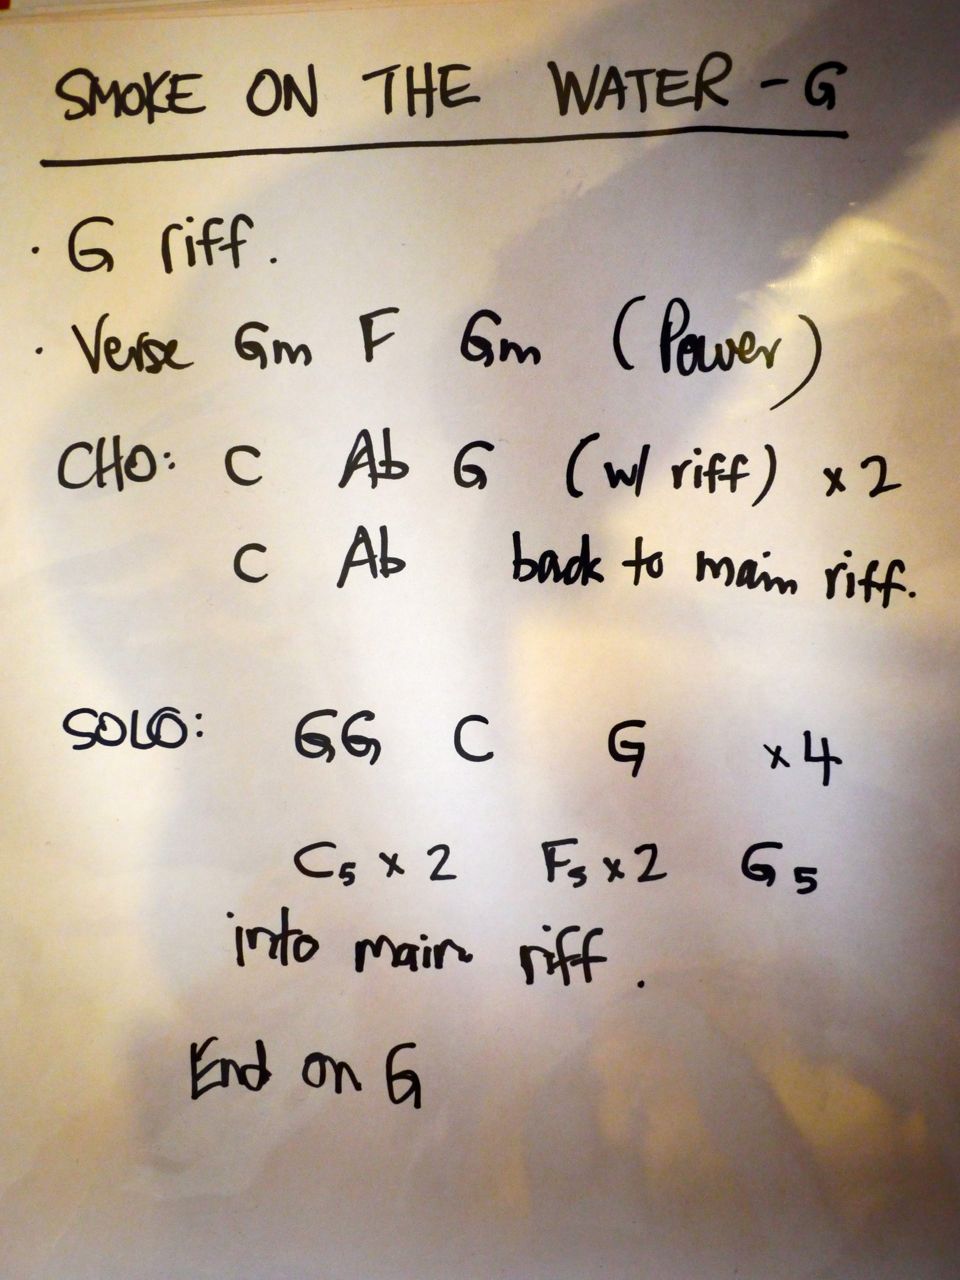 SMOKE ON THE WATER - G
· G riff.
· Verse Gm F Gm (Power)
CHO: C Ab G (w/ riff) x 2
C Ab back to main riff.
SOLO: GG C G x4
C5 x 2 F5 x 2 G5
into main riff.
End on G